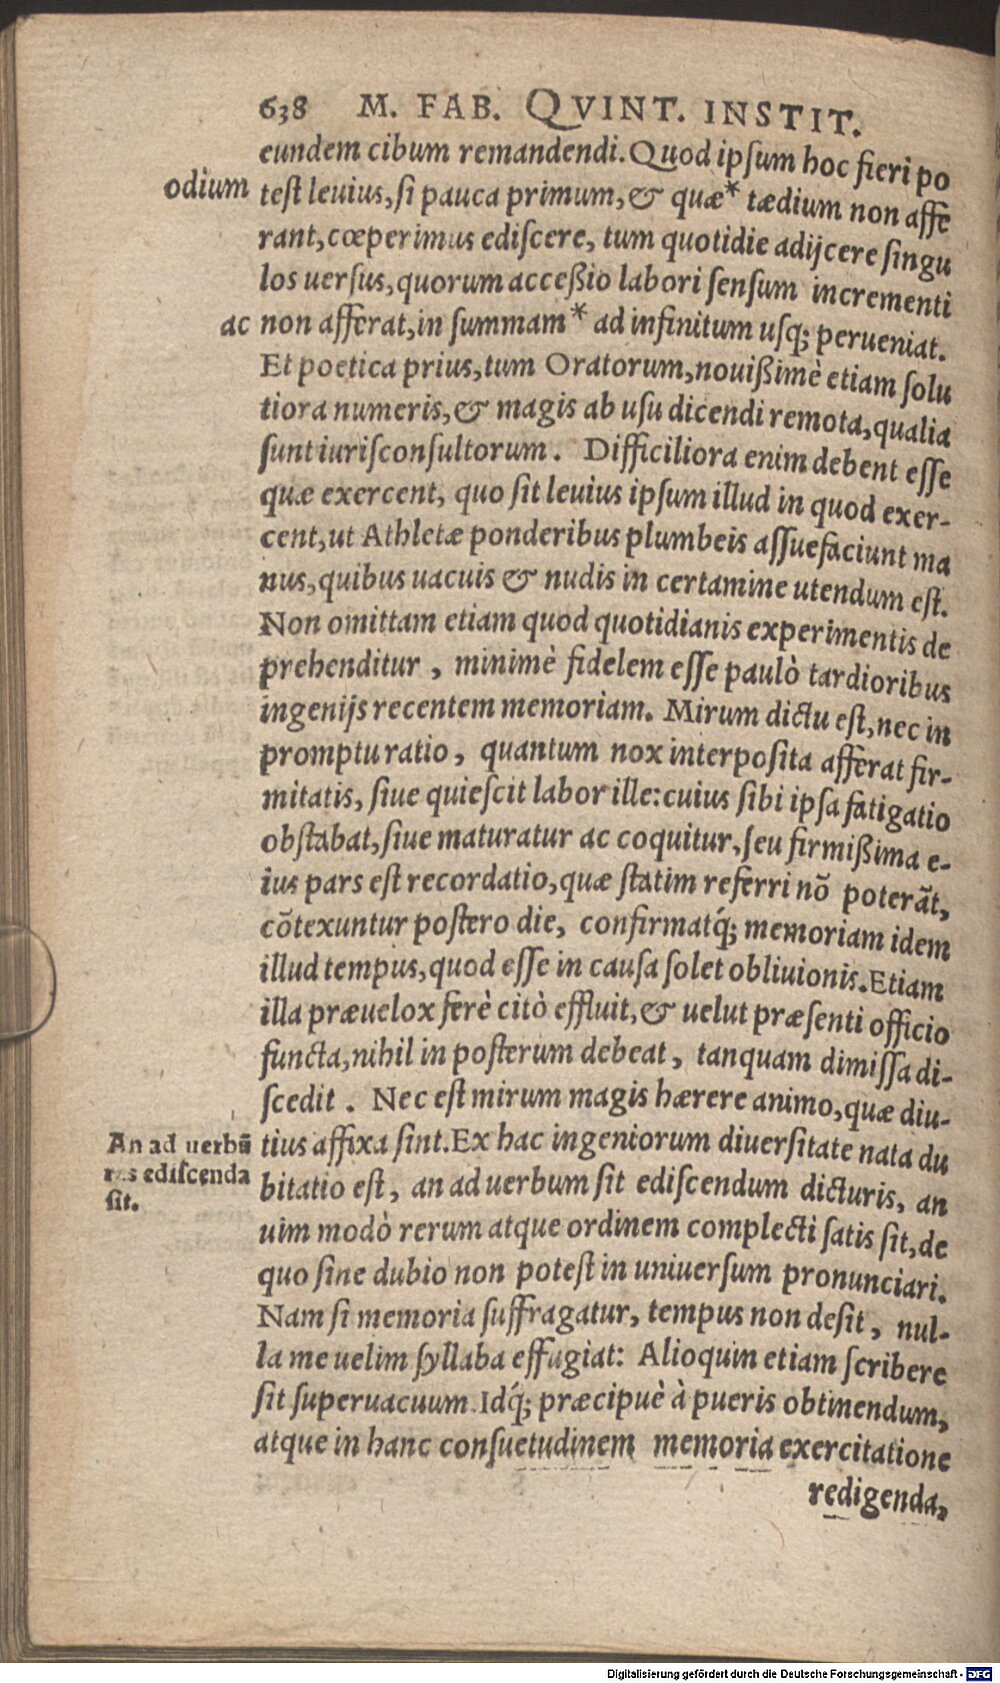 638 M. FAB. QVINT. INSTIT.
eundem cibum remandendi. Quod ipſum hoc fieri po
odium
teſt leuius, ſi pauca primum, & quæ* tædium non affe
rant, cœperimus ediſcere, tum quotidie adijcere ſingu
los uerſus, quorum acceßio labori ſenſum incrementi
ac
non afferat, in ſummam* ad infinitum uſq; perueniat.
Et poetica prius, tum Oratorum, nouißimè etiam ſolu
tiora numeris, & magis ab uſu dicendi remota, qualia
ſunt iuriſconſultorum. Difficiliora enim debent eſſe
quæ exercent, quo ſit leuius ipſum illud in quod exer-
cent, ut Athletæ ponderibus plumbeis aſſuefaciunt ma
nus, quibus uacuis & nudis in certamine utendum eſt.
Non omittam etiam quod quotidianis experimentis de
prehenditur, minimè fidelem eſſe paulò tardioribus
ingenijs recentem memoriam. Mirum dictu eſt, nec in
promptu ratio, quantum nox interpoſita afferat fir-
mitatis, ſiue quieſcit labor ille: cuius ſibi ipſa fatigatio
obſtabat, ſiue maturatur ac coquitur, ſeu firmißima e-
ius pars eſt recordatio, quæ ſtatim referri nõ poterãt,
cõtexuntur poſtero die, confirmatq́; memoriam idem
illud tempus, quod eſſe in cauſa ſolet obliuionis. Etiam
illa præuelox ferè citò effluit, & uelut præſenti officio
functa, nihil in poſterum debeat, tanquam dimiſſa di-
ſcedit. Nec eſt mirum magis hærere animo, quæ diu-
An ad uerbũ
res ediſcenda
ſit.
tius affixa ſint. Ex hac ingeniorum diuerſitate nata du
bitatio eſt, an ad uerbum ſit ediſcendum dicturis, an
uim modò rerum atque ordinem complecti ſatis ſit, de
quo ſine dubio non poteſt in uniuerſum pronunciari.
Nam ſi memoria ſuffragatur, tempus non deſit, nul-
la me uelim ſyllaba effugiat: Alioquin etiam ſcribere
ſit ſuperuacuum. Idq́; præcipuè à pueris obtinendum,
atque in hanc conſuetudinem memoria exercitatione
redigenda,
Digitalisierung gefördert durch die Deutsche Forschungsgemeinschaft - DFG